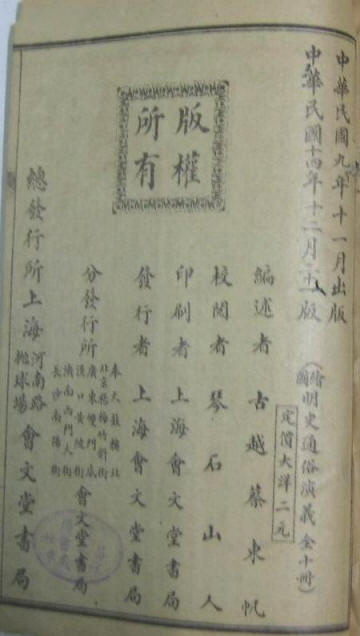 中華民國九年十一月出版
中華民國十四年十二月二十八版
(繪圖明史通俗演義全十冊)
定價大洋二元
編述者 古越蔡東帆
校閱者 琴石山人
印刷者 上海會文堂書局
發行者 上海會文堂書局
分發行所
奉天鼓樓北
北京楊梅竹斜街
廣東雙門底
漢口黃陂街
濟南西門大街
長沙南陽街
會文堂書局
總發行所上海河南路拋球場會文堂書局
版權
所有